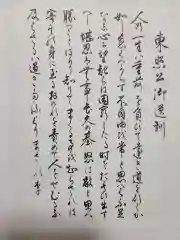 東照公御遺訓
人の一生は重荷を負て遠き道を行くが
如し急ぐべからず不自由を常と思へば不足
なし心に望起らば困窮したる時を思ひ出す
べし堪忍は無事長久の基怒は敵と思へ
勝つことばかり知りてまくる事を知らざれば
害其身に至るおのれを責めて人をせむるな
及ばざるは過ぎたるよりまされり